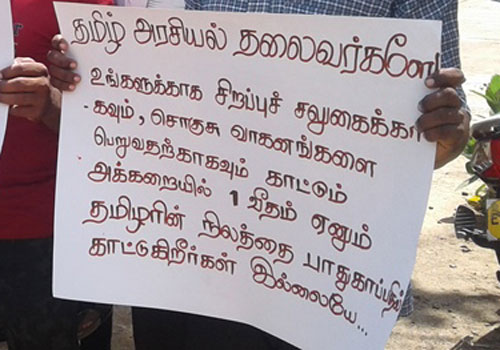 தமிழ் அரசியல் தலைவர்களே!
உங்களுக்காக சிறப்புச் சலுகைக்கா
-கவும், சொகுசு வாகனங்களை
பெறுவதற்காகவும் காட்டும்
அக்கறையில் 1 வீதம் ஏனும்
தமிழரின் நிலத்தை பாதுகாப்பதில்
காட்டுகிறீர்கள் இல்லையே...